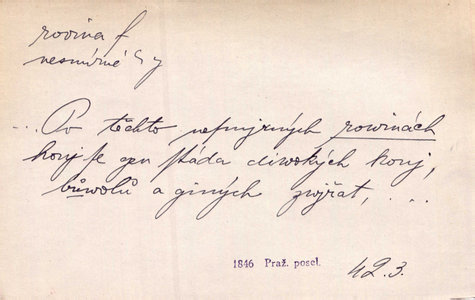 rovina f
nesmírné
... Po těchto nesmjrných rowinách
honj se gen stáda diwokých konj,
bůwolů a giných zwjřat, ...
1846 Praž. posel.
42.3.